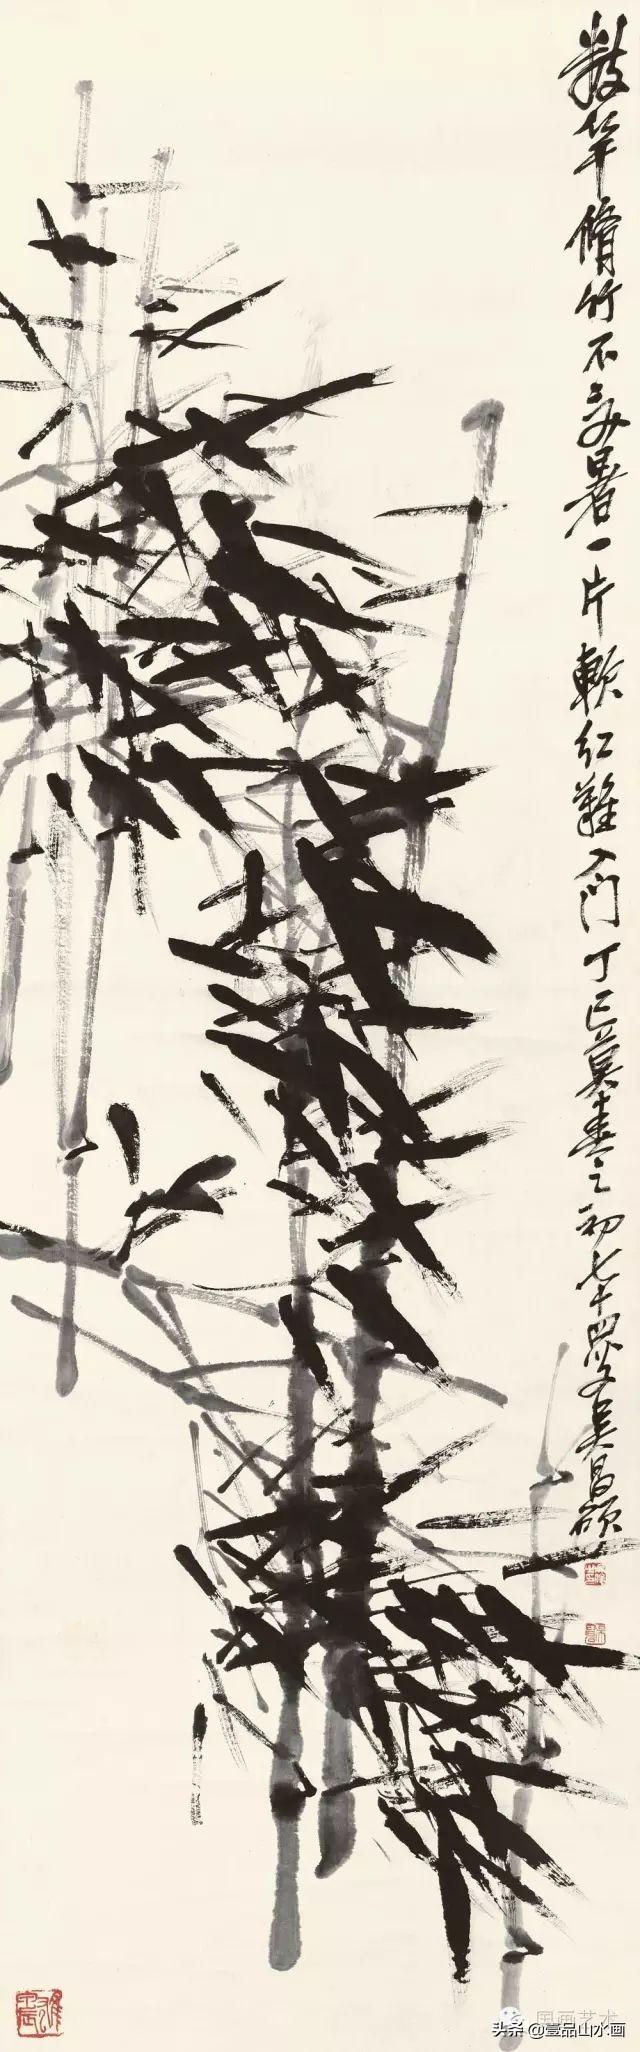 数竿脩竹不受暑一片軟红難入门丁巳莫春之初七十四叟吴昌碩
国画艺术
头条@壹品山水画